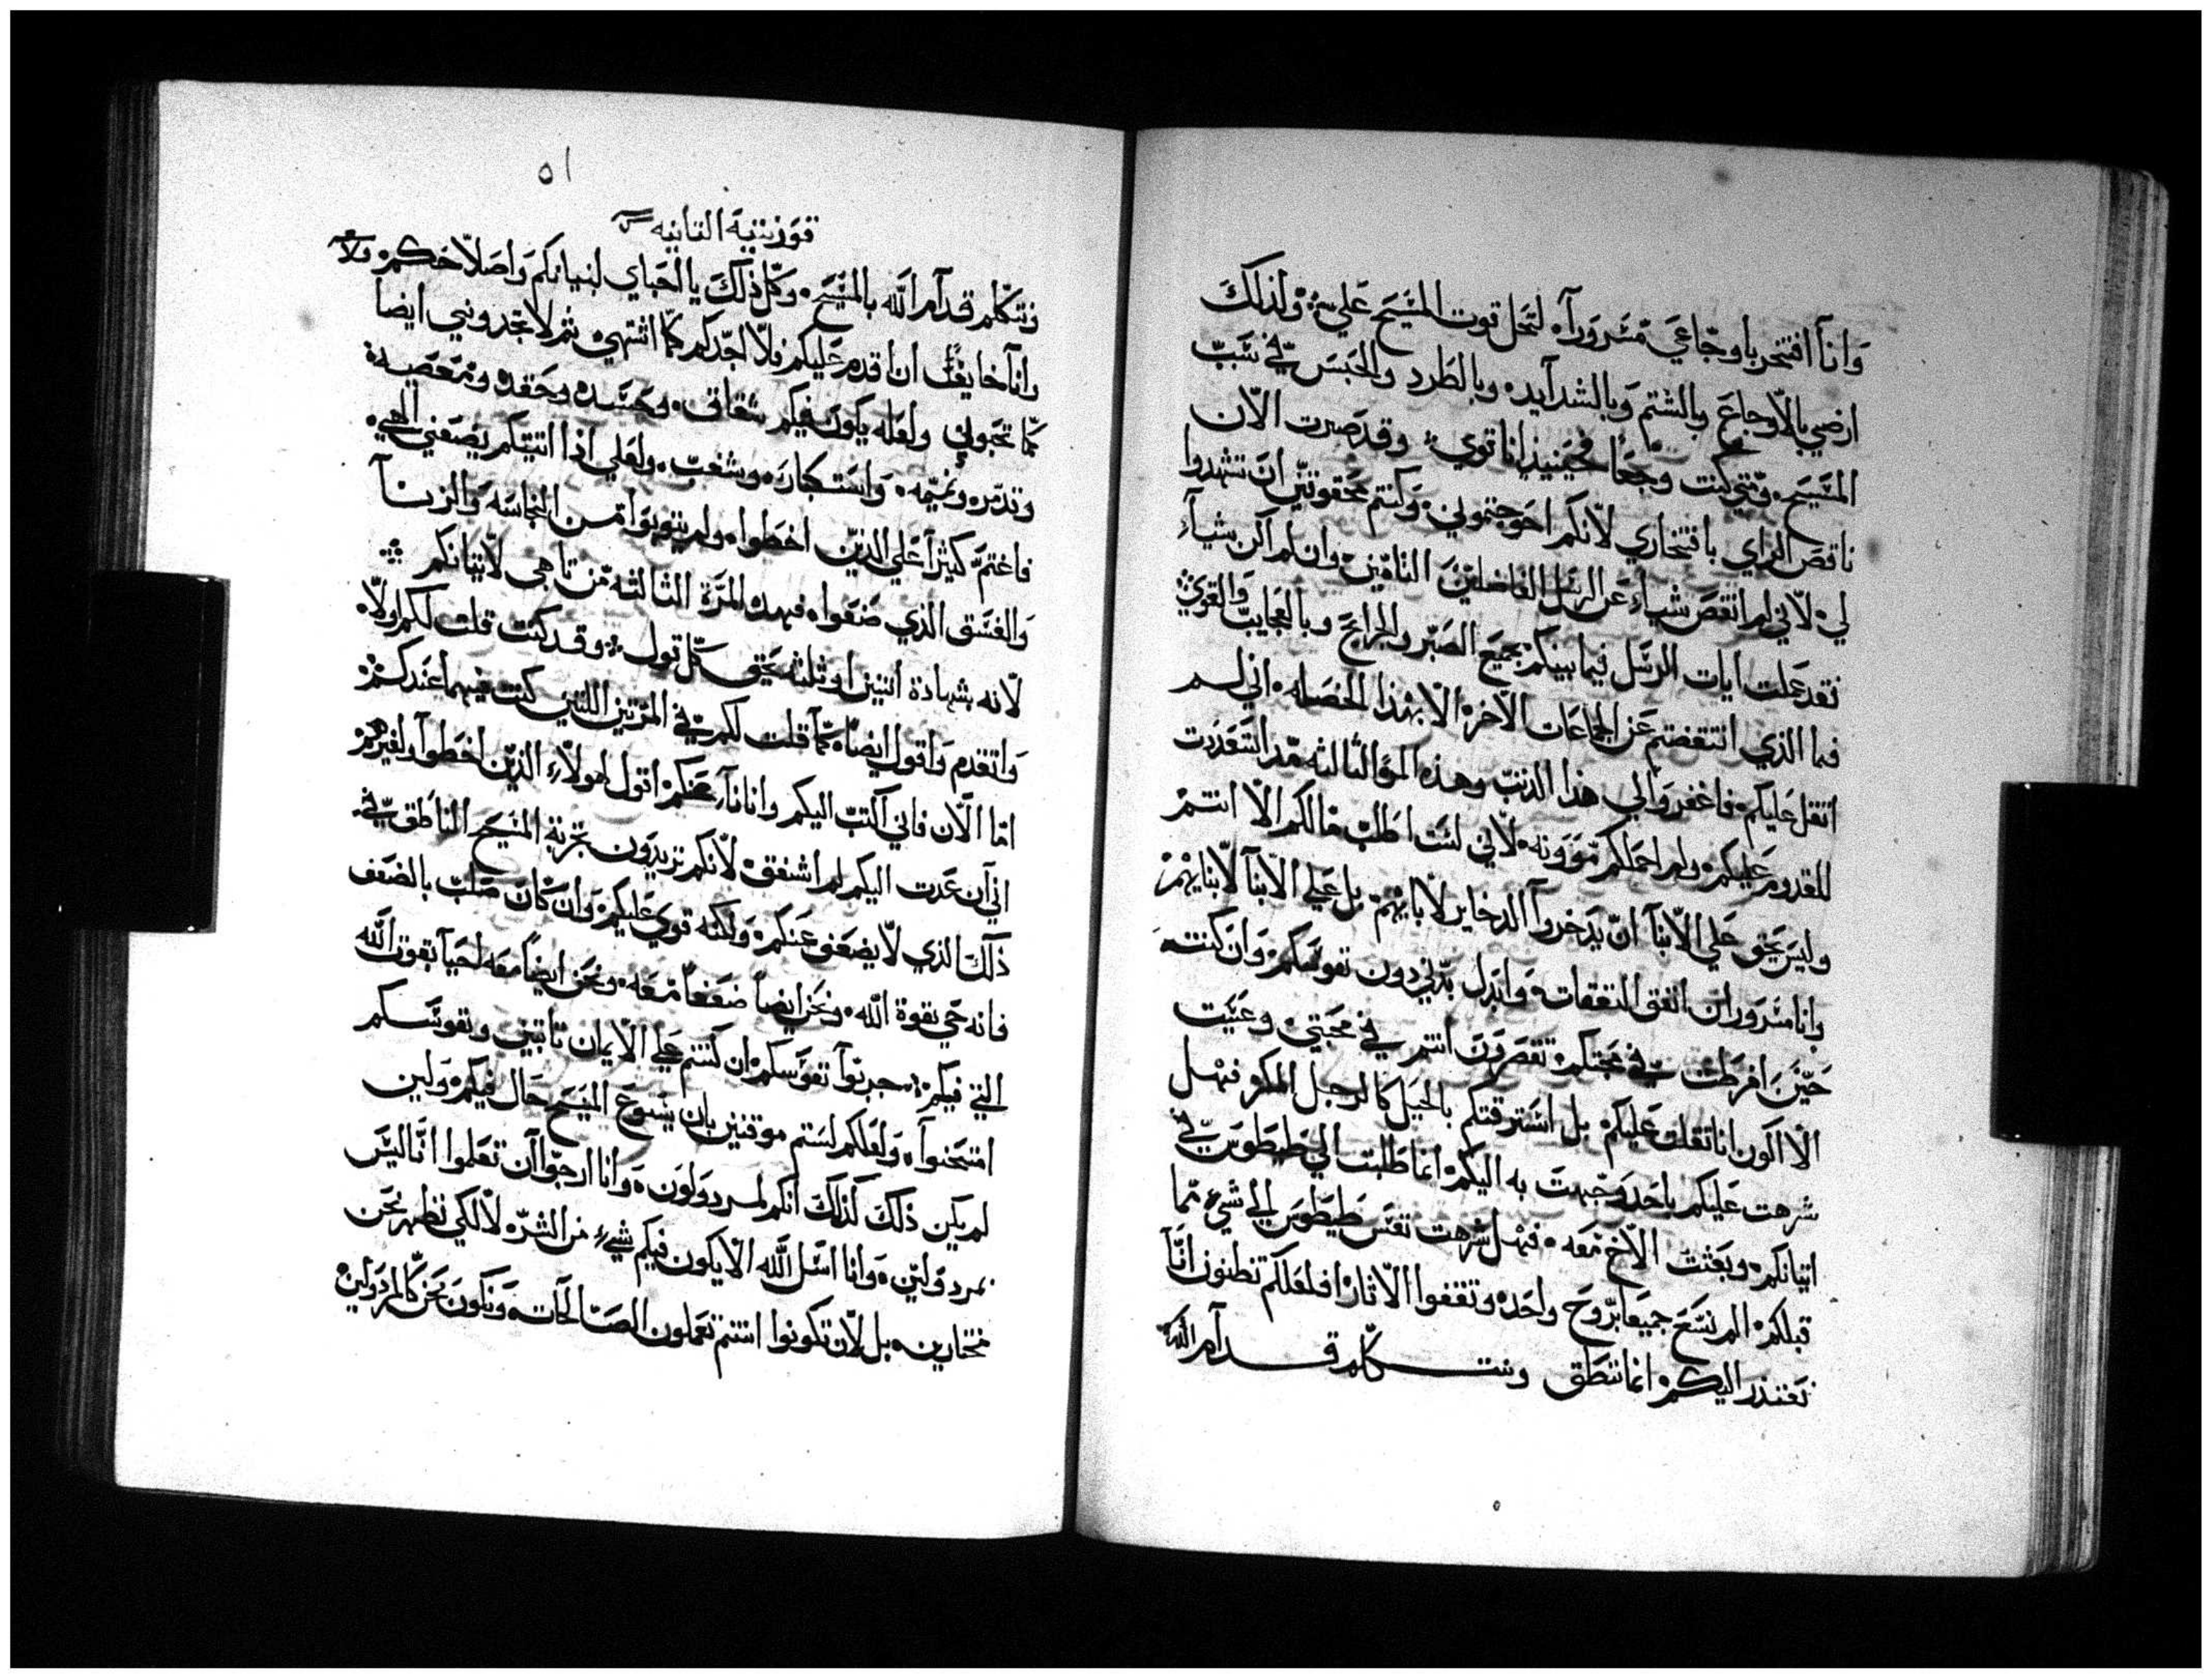 وانا افتخر باوجاعي مسروراً لتحل قوت المسيح علي ولذلك
ارضي بالاوجاع وبالشتم وبالشدايد وبالطرد والحبس في سبب
المسيح ومتي كنت وجعاً فحينيذ انا قوي وقد صرت الان
ناقص الراي بافتخاري لانكم احوجتموني وكنتم محقوقين ان تشهدوا
لي لاني لم انقص شياء عن الرسل الفاضلين التامين وان لم اكن شياء
لقد عملت ايات الرسل فيما بينكم بجميع الصبر والجرايح وبالعجايب والقوي
فما الذي انتقصتم عن الجماعات الاخره الا بهذا الخصله اني لم
اثقل عليكم فاغفروا لي هذا الذنب وهذه المره الثالثه مذ استعددت
للقدوم عليكم ولم احملكم موونه لاني لست اطلب مالكم الا انتم
وليس يحق علي الابنا ان يدخروا الدخاير لابايهم بل علي الابا لابنايهم
وانا مسرور ان انفق النفقات وابدل بدني دون نفوسكم وان كنت
حين افرطت في محبتكم تقصرون انتم في محبتي وعسيت
الا اكون انا ثقلت عليكم بل استرقتكم بالحيل كالرجل المكر فهل
شرهت عليكم باحد وجهت به اليكم انما طلبت الي طيطوس في
اتيانكم وبعثت الاخ معه فهل شرهت نفس طيطوس الي شي مما
قبلكم الم نسع جميعا بروح واحده ونقفوا الاثار افلعلكم تظنون انا
نعتذر اليكم انما ننطق ونتكلم قدام الله
٥١
قورنتية التانيه
نتكلم قدام الله بالمسيح وكل ذلك يا احباي لبنيانكم واصلاحكم ولا
وانا خايف ان اقدم عليكم فلا اجدكم كما اشتهي ثم لا تجدوني ايضا
كما تحبوني ولعله يكون فيكم شقاق وحسد وحقد ومعصيه
وتدمر ونميمه واستكبار وشغب ولعلي اذا اتيتكم يضعني الهي
فاغتم كثيرا علي الذين اخطوا ولم يتوبوا من النجاسه والزنا
والفسق الذي صنعوا فهده المرة الثالثه من تاهبي لاتيانكم
لانه بشهادة اتنين او ثلثه يحق كل قول وقد كنت قلت لكم اولا
واتقدم واقول ايضا كما قلت لكم في المرتين اللتين كنت فيهما عندكم
اما الان فاني اكتب اليكم وانا ناء عنكم اقول لهولاء الذين اخطوا ولغيرهم
اني ان عدت اليكم لم اشفق لانكم تريدون تجربة المسيح الناطق في
ذلك الذي لا يضعف عنكم ولكنه قوي عليكم وان كان صلب بالضعف
فانه حي بقوة الله ونحن ايضا ضعفا معه ونحن ايضا معه احيا بقوت الله
التي فيكم جربوا نفوسكم ان كنتم علي الايمان تابتين ونفوسكم
امتحنوا ولعلكم لستم موقنين بان يسوع المسيح حال فيكم ولين
لم يكن ذلك كذلك انكم لمردولون وانا ارجوا ان تعلموا انا ليس
بمردولين وانا اسل الله الا يكون فيكم شيء من الشره لا لكي نظهر نحن
مختارين بل لان تكونوا انتم تعملون الصالحات ونكون نحن كالمردولين